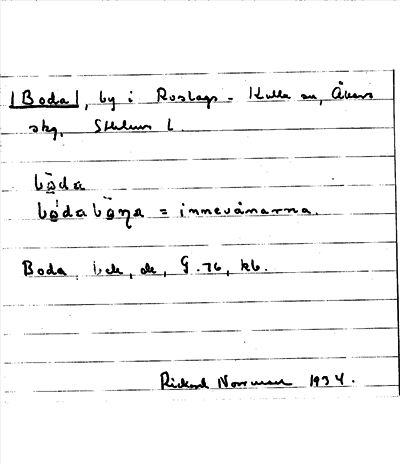 |Boda|, by i Roslags-Kulla sn, Åkers
skg, Sthlms l.
bo̠da
bo̠dabo̠ŋa = innevånarna.
Boda, G. 76, kb.
Rickard Norrman 1934.